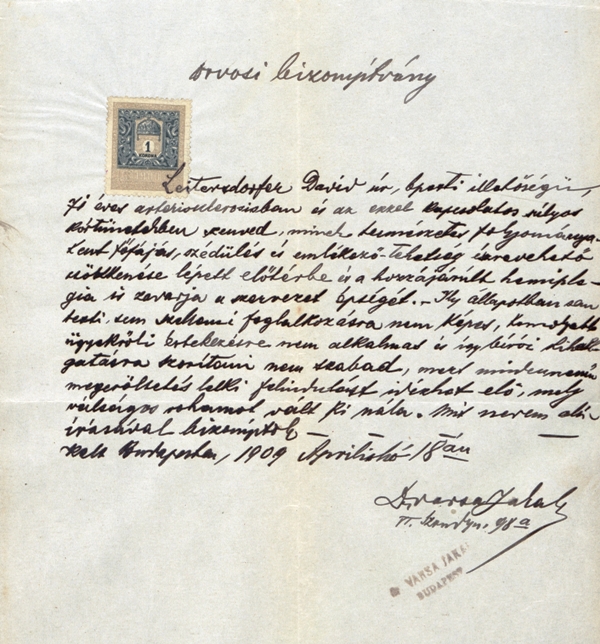 Orvosi bizonyítvány
1
Leitersdorfer David úr, eperti illetőségü,
71 éves arteriosclerosisban és az ezzel kapcsolatos súlyos
kórtünetekben szenved, minek természetes folyománya-
kent főfájás, szédülés és emlékező-tehetség észrevehető
csökkenése lépett előtérbe és a hozzájárult hemiple-
gia is zavarja a szervezet épségét. - Ily állapotban sem
testi, sem szellemi foglalkozásra nem képes, komolyabb
ügyekröli értekezésre nem alkalmas és igy birói kihall-
gatásra szoritani nem szabad, mert mindennemü
megerőltetés lelki felindulást idézhet elő, mely
válságos rohamot vált ki nála. Mit nevem alá-
irásával bizonyitok
Kelt Budapesten, 1909 Aprilishó 18 án
Dr Varsa Jakab
Szondy u. 98a
Dr VARSA JAKAB
BUDAPEST